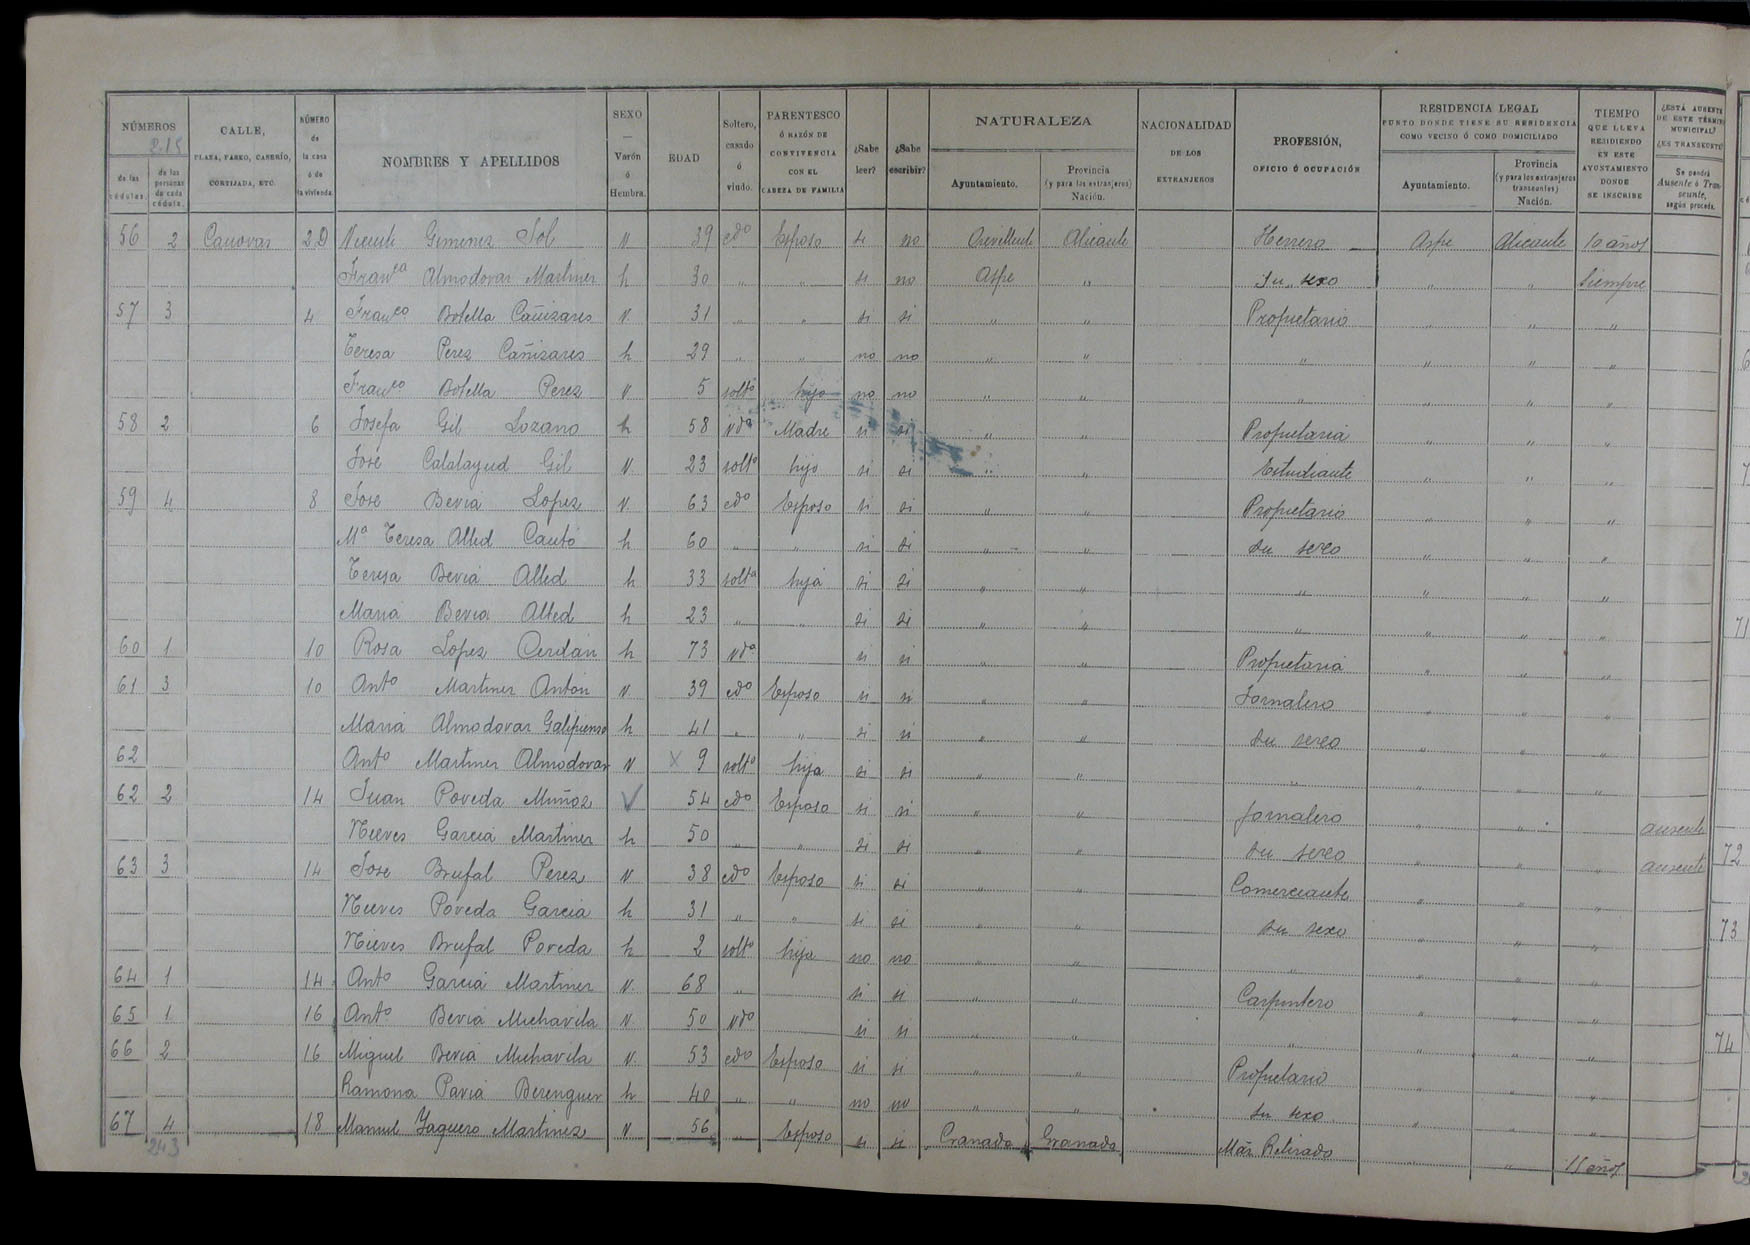 NÚMEROS
218
de las cédulas.
de las personas de cada cédula.
CALLE,
PLAZA, PASEO, CASERÍO,
CORTIJADA, ETC.
NÚMERO
de
la casa
ó de
la vivienda.
NOMBRES Y APELLIDOS
SEXO
—
Varón
ó
Hembra.
EDAD
Soltero,
casado
ó
viudo.
PARENTESCO
Ó RAZÓN DE
CONVIVENCIA
CON EL
CABEZA DE FAMILIA
¿Sabe leer?
¿Sabe escribir?
NATURALEZA
Ayuntamiento.
Provincia
(y para los extranjeros)
Nación.
NACIONALIDAD
DE LOS
EXTRANJEROS
PROFESIÓN,
OFICIO Ó OCUPACIÓN
RESIDENCIA LEGAL
PUNTO DONDE TIENE SU RESIDENCIA
COMO VECINO Ó COMO DOMICILIADO
Ayuntamiento.
Provincia
(y para los extranjeros
transeuntes)
Nación.
TIEMPO
QUE LLEVA
RESIDIENDO
EN ESTE
AYUNTAMIENTO
DONDE
SE INSCRIBE
¿ESTÁ AUSENTE
DE ESTE TÉRMINO
MUNICIPAL?
¿ES TRANSEUNTE?
Se pondrá
Ausente ó Tran-
seunte,
según proceda.
56 2 Canovas 2D Vicente Gimenez Sol V 39 cdo Esposo si no Crevillente Alicante Herrero Aspe Alicante 10 años
Franca Almodovar Martinez h 30 " " si no Aspe " Su sexo " " Siempre
57 3 4 Franco Botella Cañizares V. 31 " " si si " " Propietario " " "
Teresa Perez Cañizares h 29 " " no no " " " " " "
Franco Botella Perez V 5 solto hijo no no " " " " " "
58 2 6 Josefa Gil Lozano h 58 vda Madre si si " " Propietaria " " "
José Calatayud Gil V. 23 solto hijo si si " " Estudiante " " "
59 4 8 José Bevia Lopez V. 63 cdo Esposo si si " " Propietario " " "
Ma Teresa Alted Cantó h 60 " " si si " " Su sexo " " "
Teresa Beviá Alted h 33 solta hija si si " " " " " "
Maria Bevia Alted h 23 " " si si " " " " " "
60 1 10 Rosa Lopez Cerdán h 73 vda si si " " Propietaria " " "
61 3 10 Anto Martinez Antón V 39 cdo Esposo si si " " Jornalero " " "
Maria Almodovar Galipienso h 41 " " si si " " Su sexo " " "
62 Anto Martinez Almodovar V X 9 solto hijo si si " " " " " "
62 2 14 Juan Poveda Muñoz V 54 cdo Esposo si si " " Jornalero " " ausente
Nieves García Martinez h 50 " " si si " " Su sexo " " ausente
63 3 14 Jose Brufal Perez V 38 cdo Esposo si si " " Comerciante " " "
Nieves Poveda Garcia h 31 " " si si " " Su sexo " " "
Nieves Brufal Poveda h 2 solto hija no no " " " " " "
64 1 14 Anto García Martinez V. 68 " si si " " Carpintero " " "
65 1 16 Anto Bevia Michavila V. 50 vdo si si " " " " " "
66 2 16 Miguel Beviá Michavila V. 53 cdo Esposo si si " " Propietario " " "
Ramona Paviá Berenguer h 40 " " no no " " Su sexo " " "
67 4 18 Manuel Yaguero Martinez V 56 " Esposo si si Granada Granada Mar Retirado " " 11 años
243
71
72
73
74